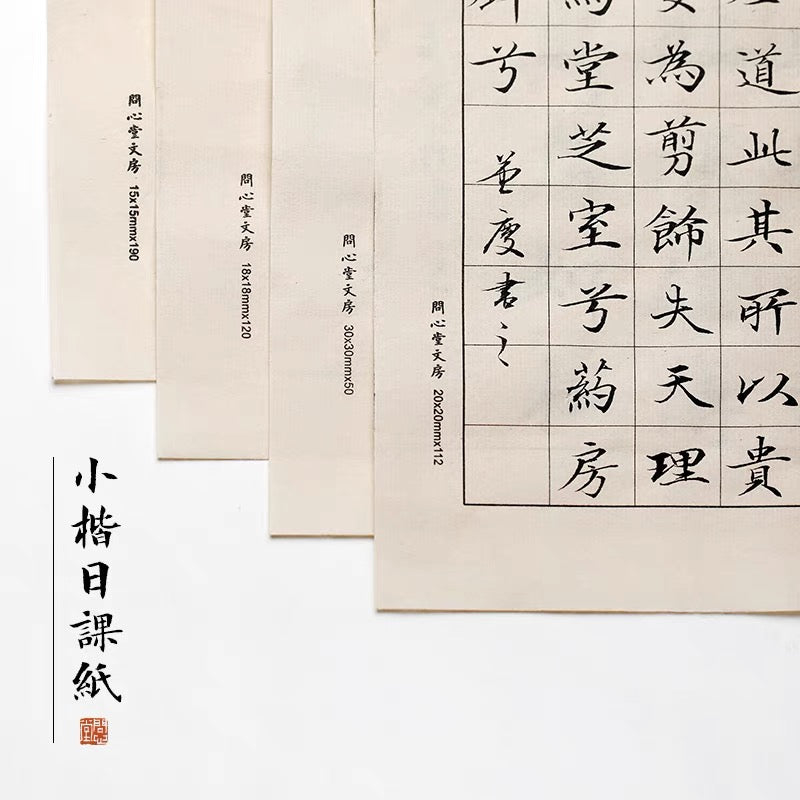 問心堂文房 15x15mmx190
問心堂文房 18x18mmx120
問心堂文房 30x30mmx50
問心堂文房 20x20mmx112
道此其所以貴
為剪飾失天理
堂芝室兮葯房
兮
書之
小楷日課紙
問心堂